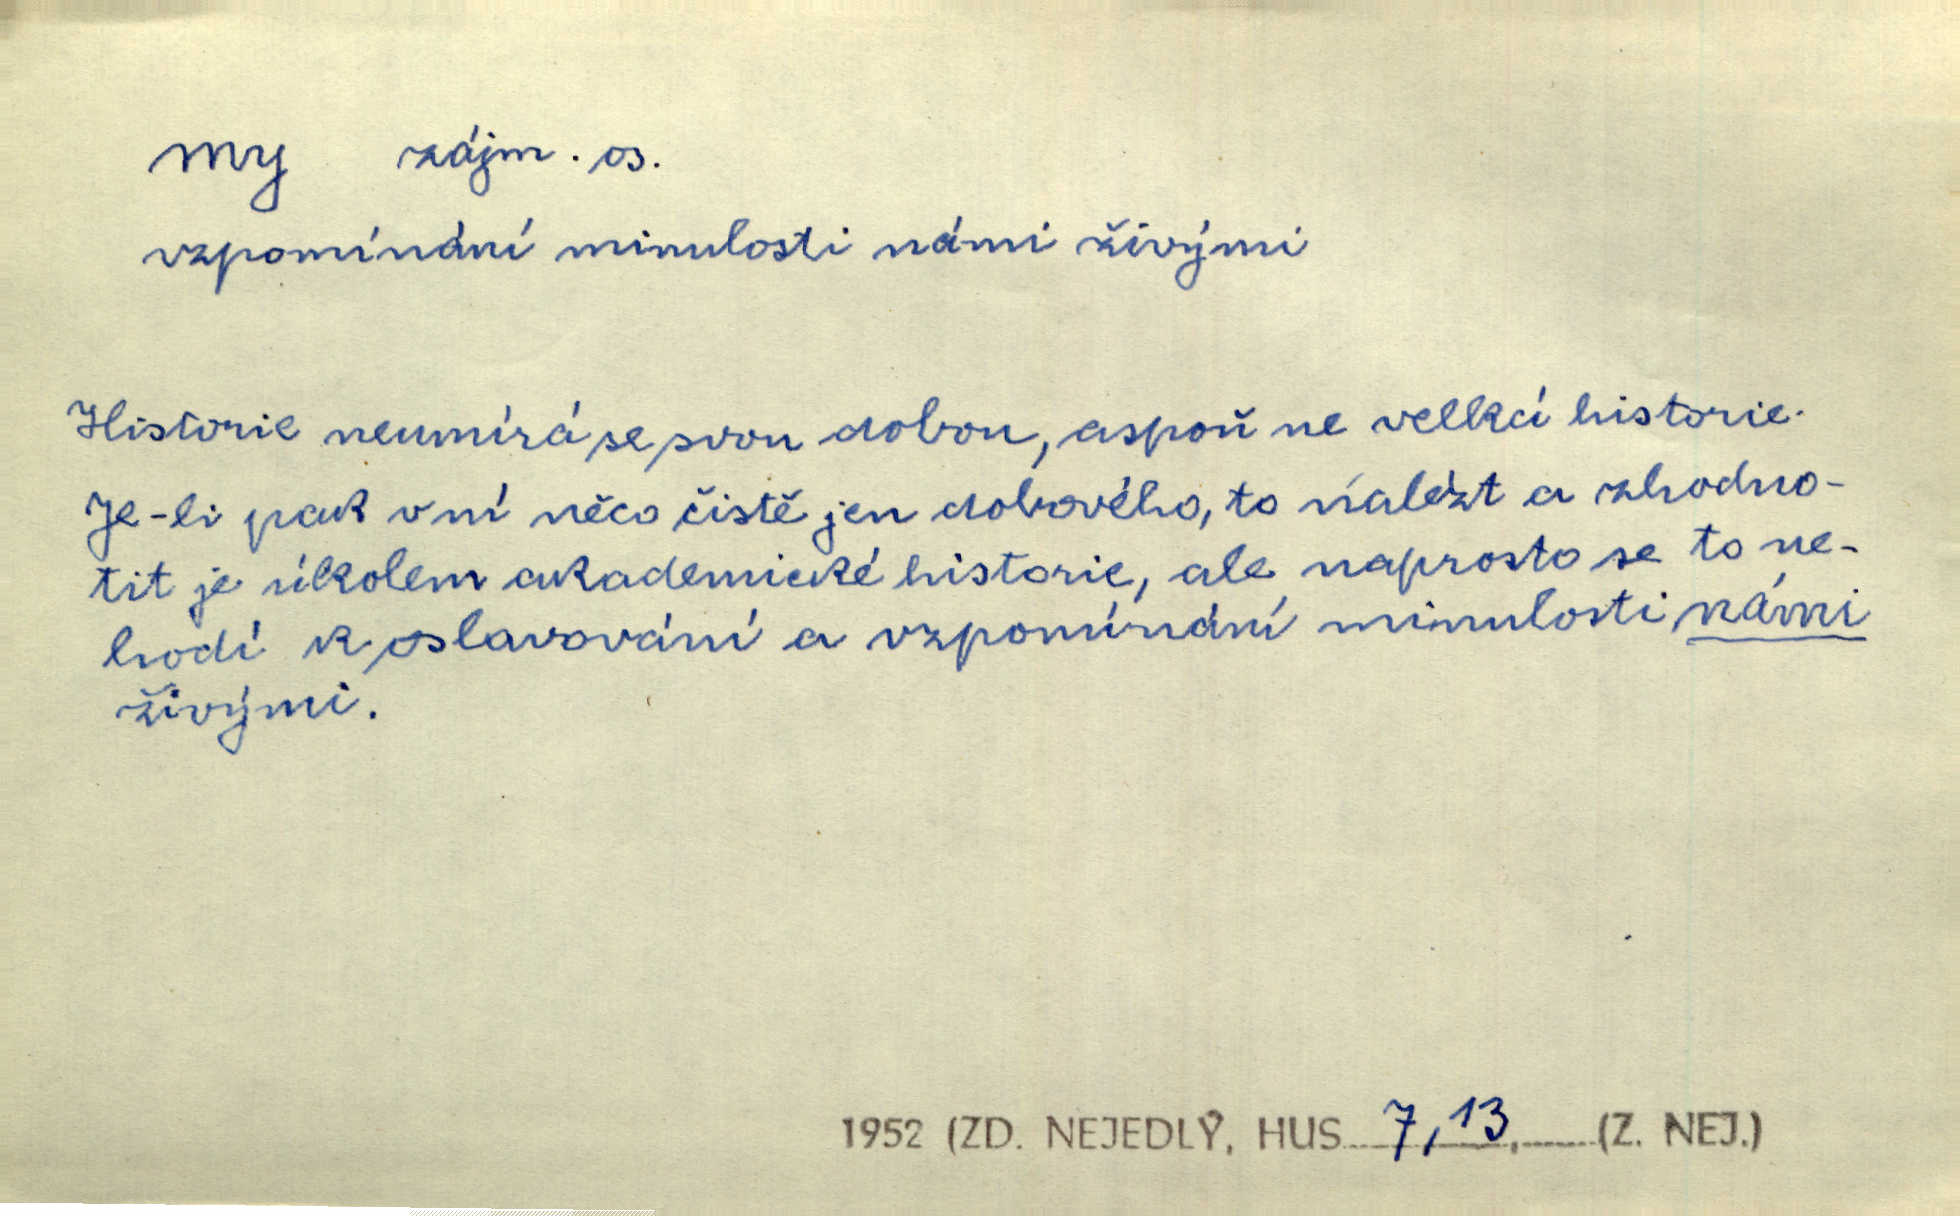 my zájm. os.
vzpomínání minulosti námi živými
Historie neumírá se svou dobou, aspoň ne velká historie.
Je-li pak v ní něco čistě jen dobového, to nalézt a zhodno-
tit je úkolem akademické historie, ale naprosto se to ne-
hodí k oslavování a vzpomínání minulosti námi
živými.
1952 (ZD. NEJEDLÝ, HUS 7, 13, (Z. NEJ.)